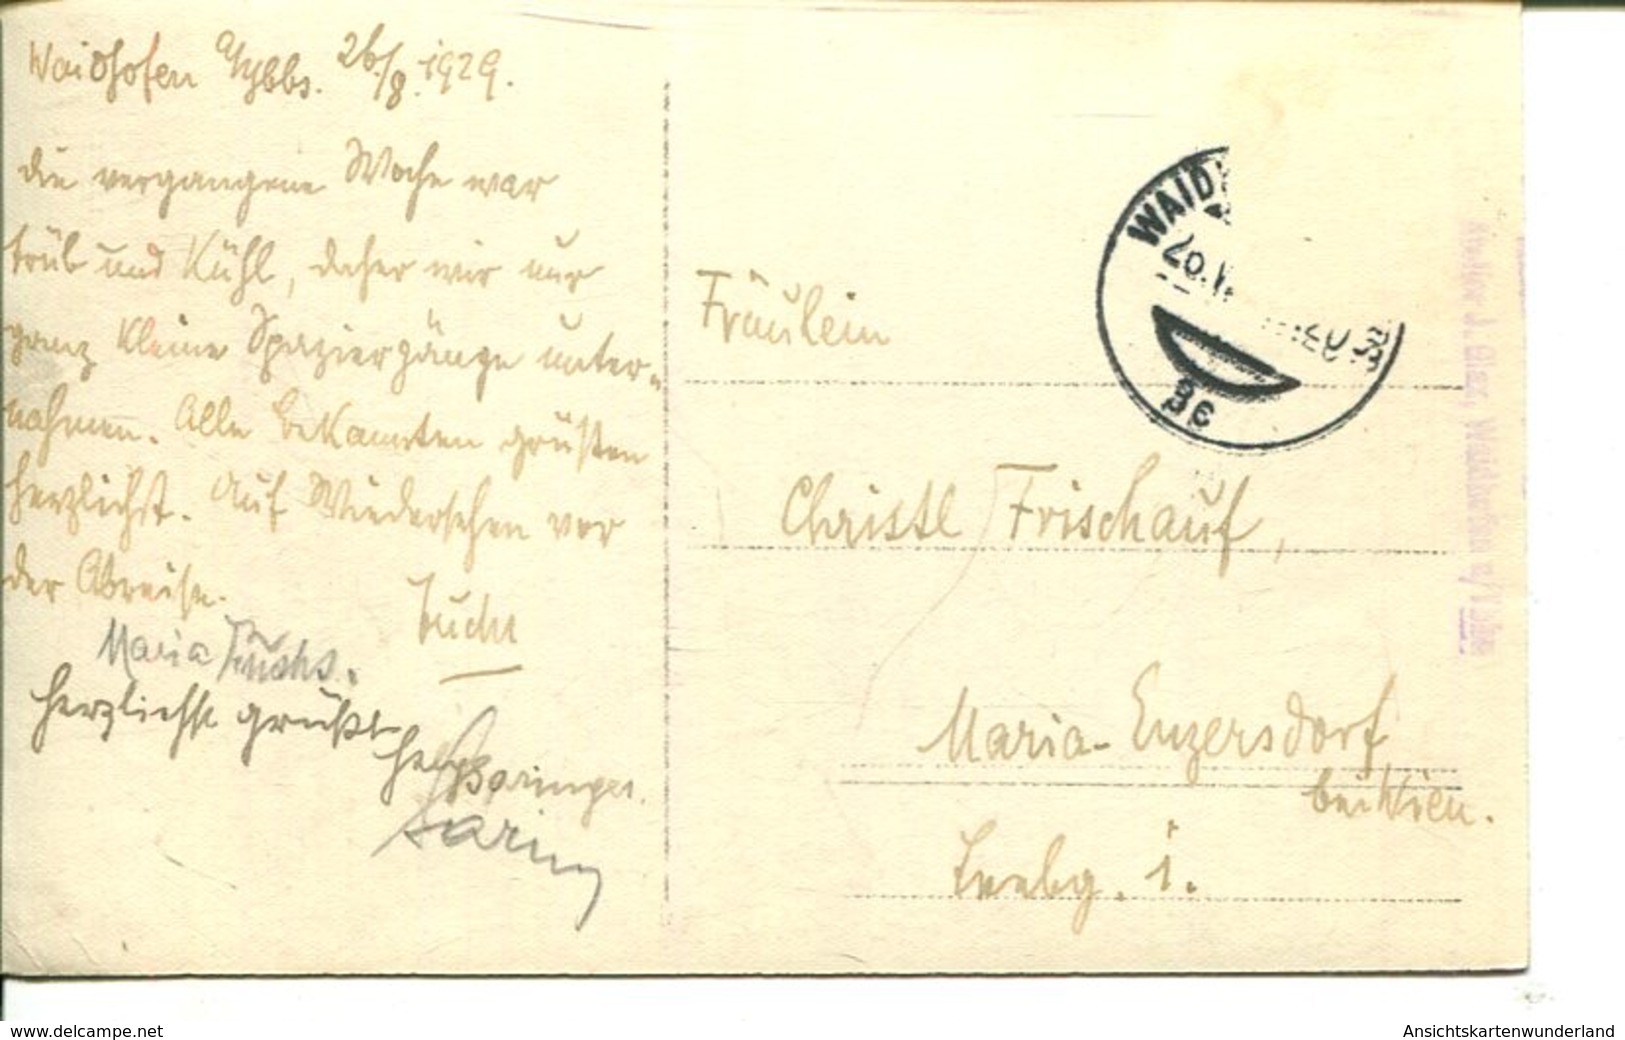 Waidhofen a/Ybbs. 26./8. 1929.
Die vergangene Woche war
trüb und kühl, daher wir nur
ganz kleine Spaziergänge unter-
nahmen. Alle Bekannten grüßen
herzlichst. Auf Wiedersehen vor
der Abreise.
Maria Fuchs.
herzlichst grüßt
WAID
Fräulein
Christl Frischauf,
Maria-Enzersdorf
bei Wien.
1.
www.delcampe.net
Ansichtskartenwunderland